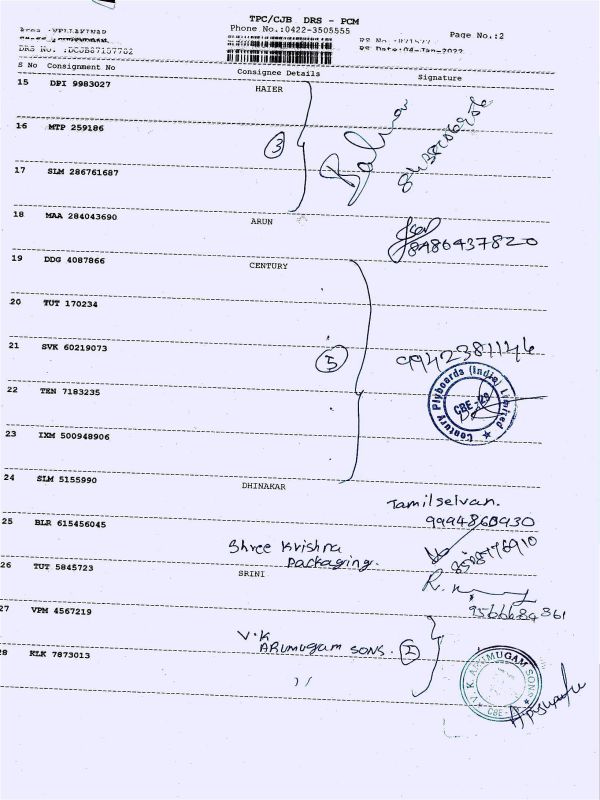 TPC/CJB DRS - PCM
Phone No.:0422-3505555
Page No.:2
DRS No. :DCJB87157782
RS Date:04-Jan-2022
S No Consignment No Consignee Details Signature
15 DPI 9983027 HAIER
16 MTP 259186
3
17 SLM 286761687
18 MAA 284043690 ARUN
8486437820
19 DDG 4087866 CENTURY
20 TUT 170234
21 SVK 60219073
5
9942381146
22 TEN 7183235
Century Plyboards (India) Limited
CBE-29
23 IXM 500948906
24 SLM 5155990 DHINAKAR
Tamilselvan.
9994860930
25 BLR 615456045
Shree Krishna
Packaging.
26 TUT 5845723 SRINI
9566684361
27 VPM 4567219
V.K
ARUMUGAM SONS. 2
28 KLK 7873013
V. K. ARUMUGAM SONS
CBE